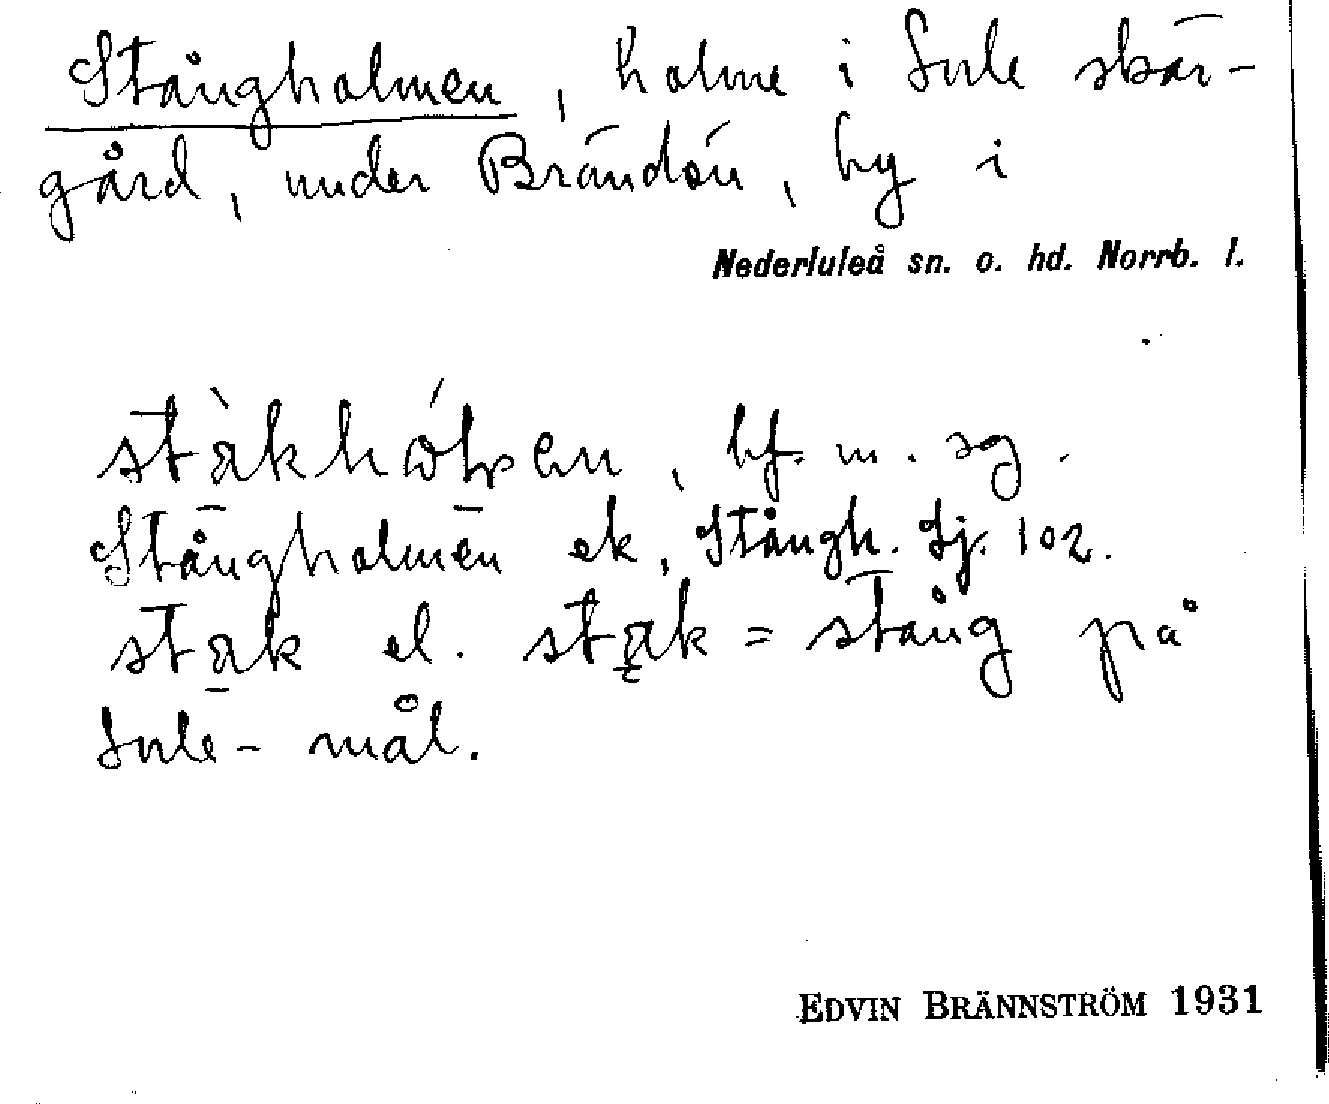 Stångholmen, holme i Lule skär-
gård, under Brändön, by i
Nederluleå sn. o. hd. Norrb. l.
bf. m. sg.
Stångholmen ek, Stångh. Sj. 102.
stak el. stak = stång på
Lule-mål.
EDVIN BRÄNNSTRÖM 1931